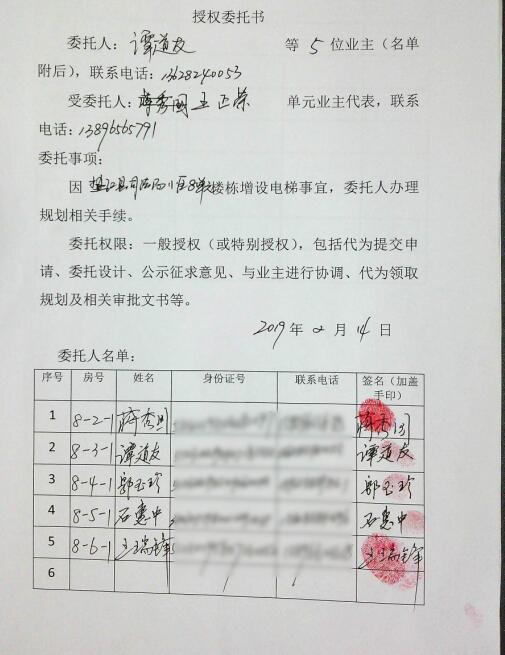 授权委托书
委托人：谭道友 等 5 位业主（名单
附后），联系电话：13628240053
受委托人：蒋秀国 王正荣 单元业主代表，联系
电话：13896565791
委托事项：
因 垫江县司法局小区8单元楼栋增设电梯事宜，委托人办理
规划相关手续。
委托权限：一般授权（或特别授权），包括代为提交申
请、委托设计、公示征求意见、与业主进行协调、代为领取
规划及相关审批文书等。
2019 年 2 月 14 日
委托人名单：
序号 房号 姓名 身份证号 联系电话 签名（加盖
手印）
1 8-2-1 蒋秀国 蒋秀国
2 8-3-1 谭道友 谭道友
3 8-4-1 郭玉珍 郭玉珍
4 8-5-1 石惠中 石惠中
5 8-6-1 王瑞锋 王瑞锋
6